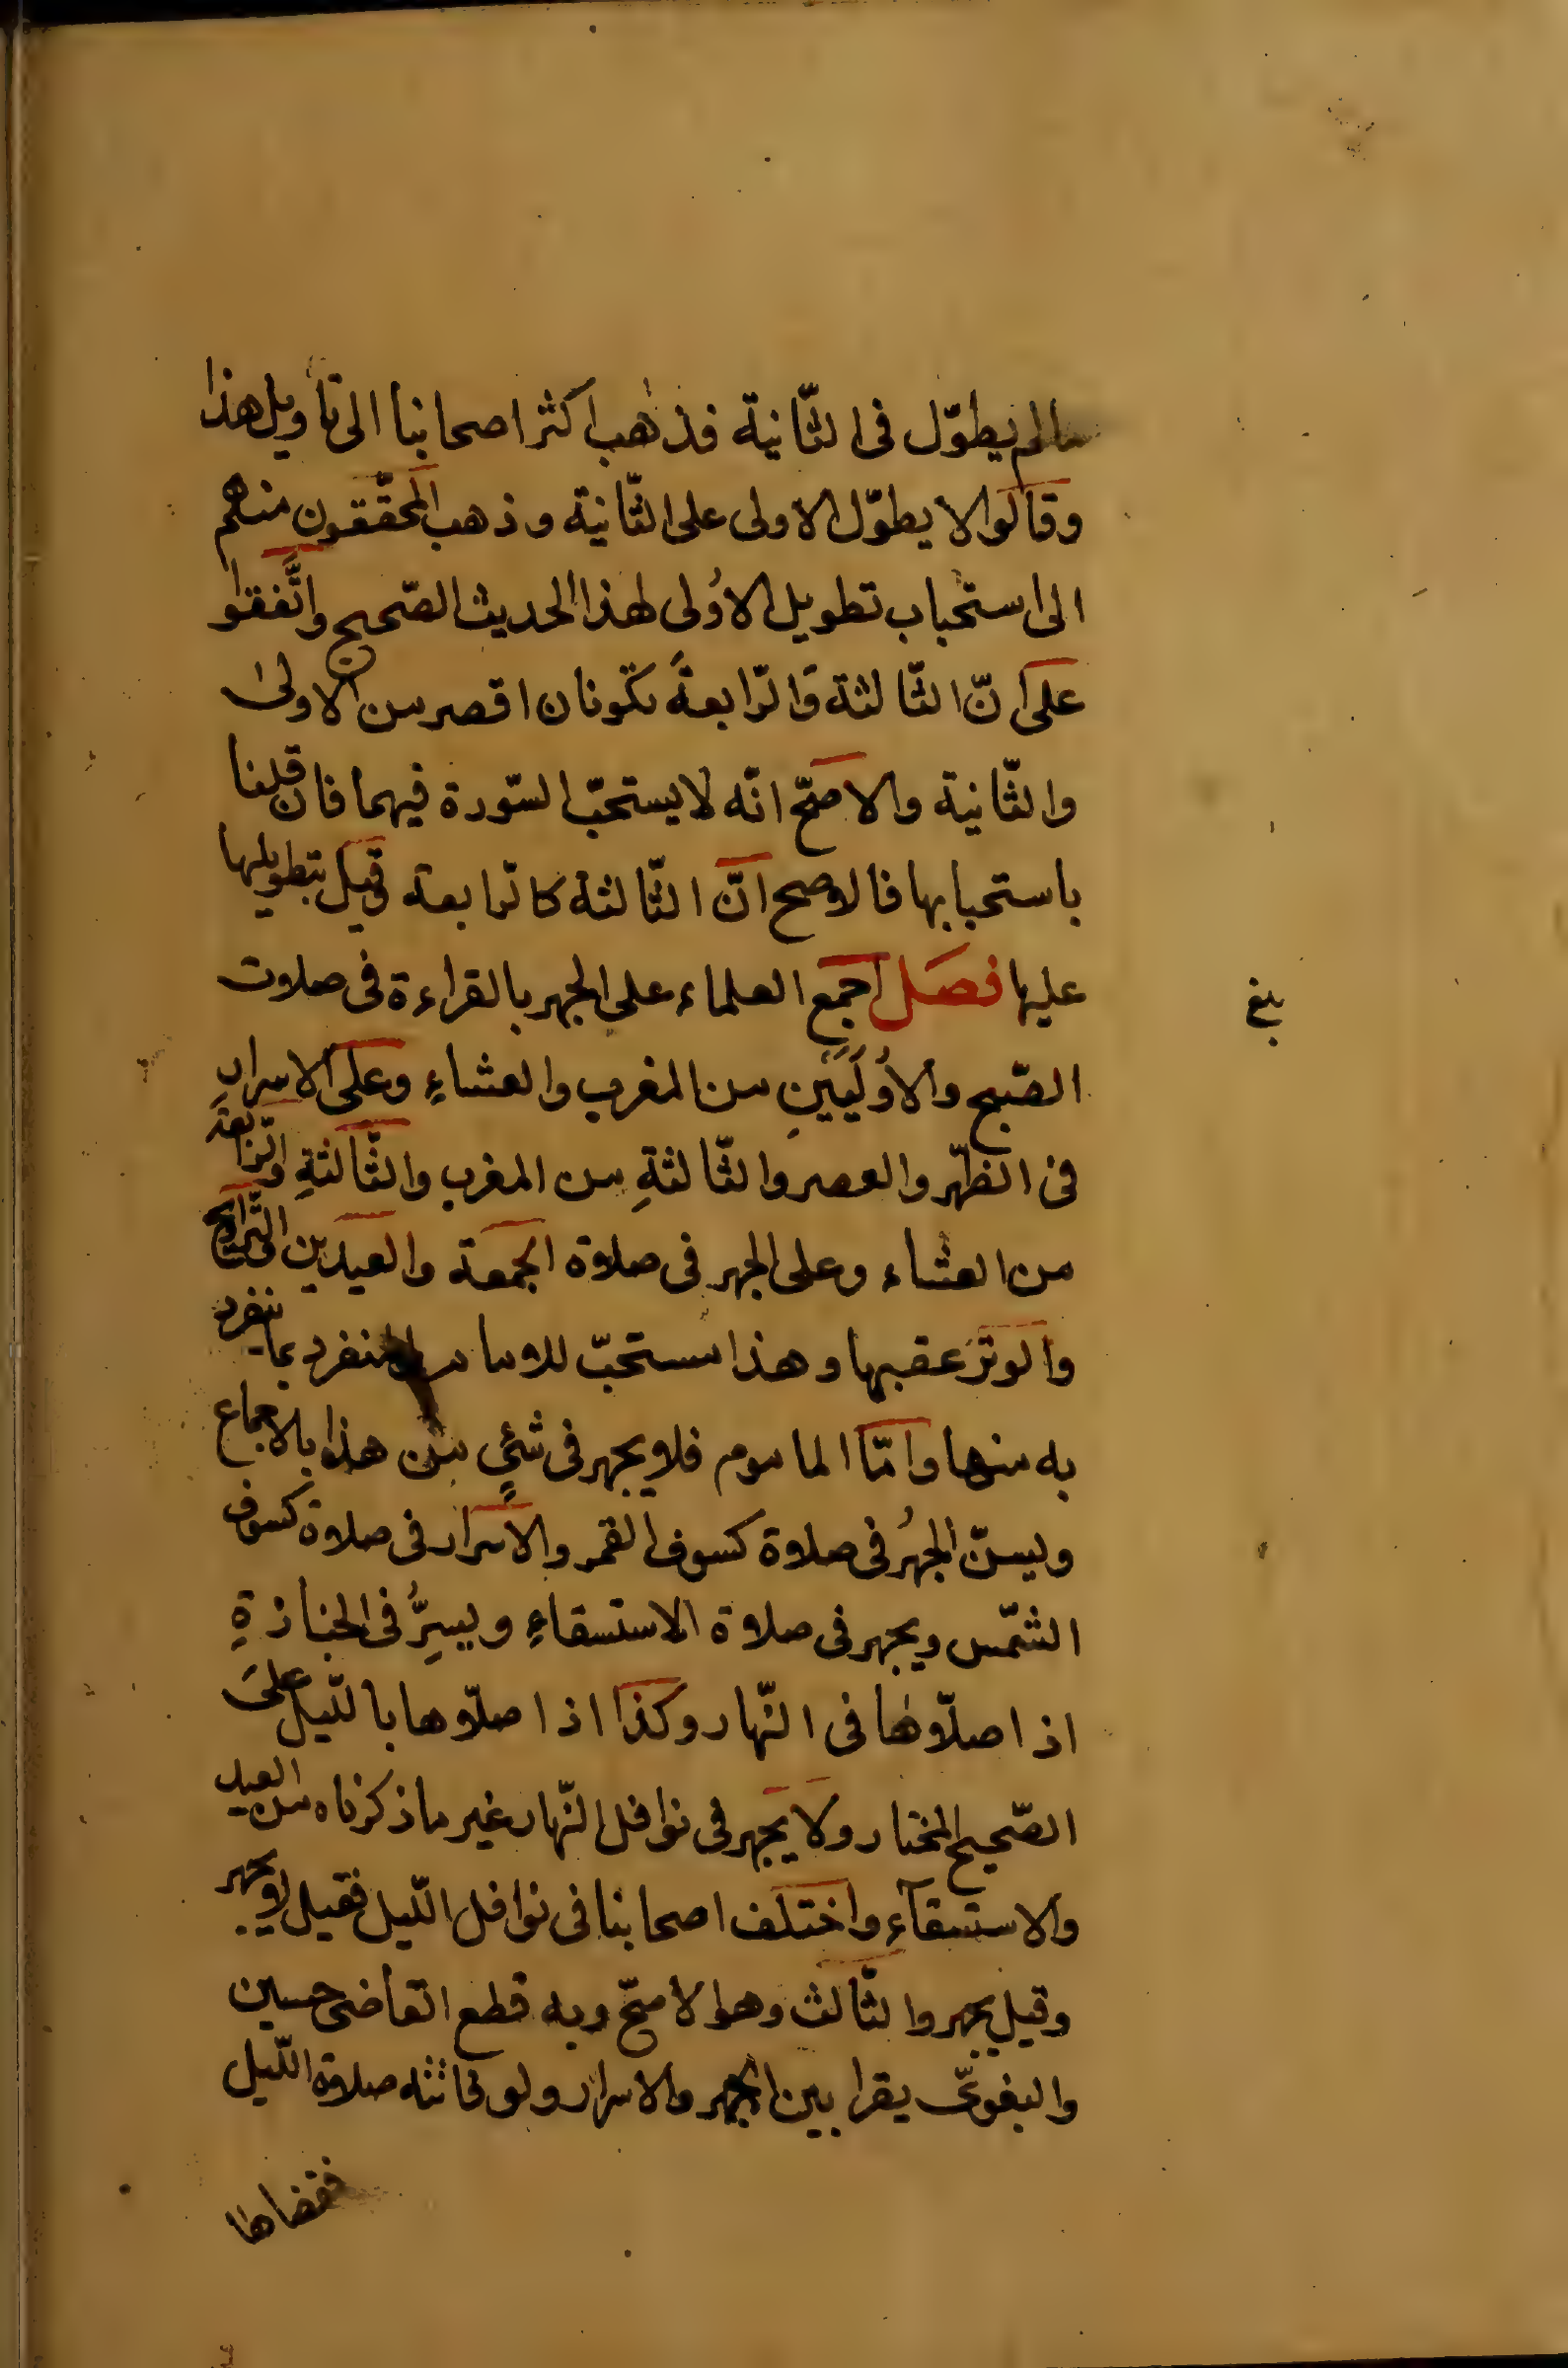 مالم يطوّل فى الثّانية فذهب اكثر اصحابنا الى تأويل هذا
وقالوا لا يطوّل الاولى على الثّانية وذهب المحقّقون منهم
الى استحباب تطويل الاُولى لهذا الحديث الصّحيح واتَّفقوا
على انّ الثّالثة والرّابعةَ تكونان اقصر من الاولى
والثّانية والاصحّ انّه لا يستحبّ السّورة فيهما فان قلنا
باستحبابها فالاصح انّ الثّالثة كالرابعة وقيل بتطويلها
عليها فصل اجمع العلماء على الجهر بالقراءة فى صلوت
الصّبح والاُوليَينِ من المغرب والعشاءِ وعلى الاسرارِ
فى الظّهر والعصر والثّالثةِ من المغرب والثّالثةِ والرّابعةِ
من العشاء وعلى الجهر فى صلاة الجمعة والعيدين والتّراويح
والوتر عقبها وهذا مستحبّ للامام والمنفرد بما ينفرد
به منها وامّا الماموم فلا يجهر فى شئٍ من هذا بالاجماع
ويسنّ الجهرُ فى صلاة كسوف القمر والاسرار فى صلاة كسوف
الشّمس ويجهر فى صلاة الاستسقاءِ ويسِرُّ فى الجنازةِ
اذا صلّوها فى النّهار وكذا اذا صلّوها باللّيل على
الصّحيح المختار ولا يجهر فى نوافل النّهار غير ما ذكرناه من العيد
والاستسقآءِ واختلف اصحابنا فى نوافل اللّيل فقيل لا يجهر
وقيل يجهر والثّالث وهو الاصحّ وبه قطع القاضى حسين
والبغوىّ يقرا بين الجهر والاسرار ولو فاتته صلاة اللّيل
فقضاها
بلغ